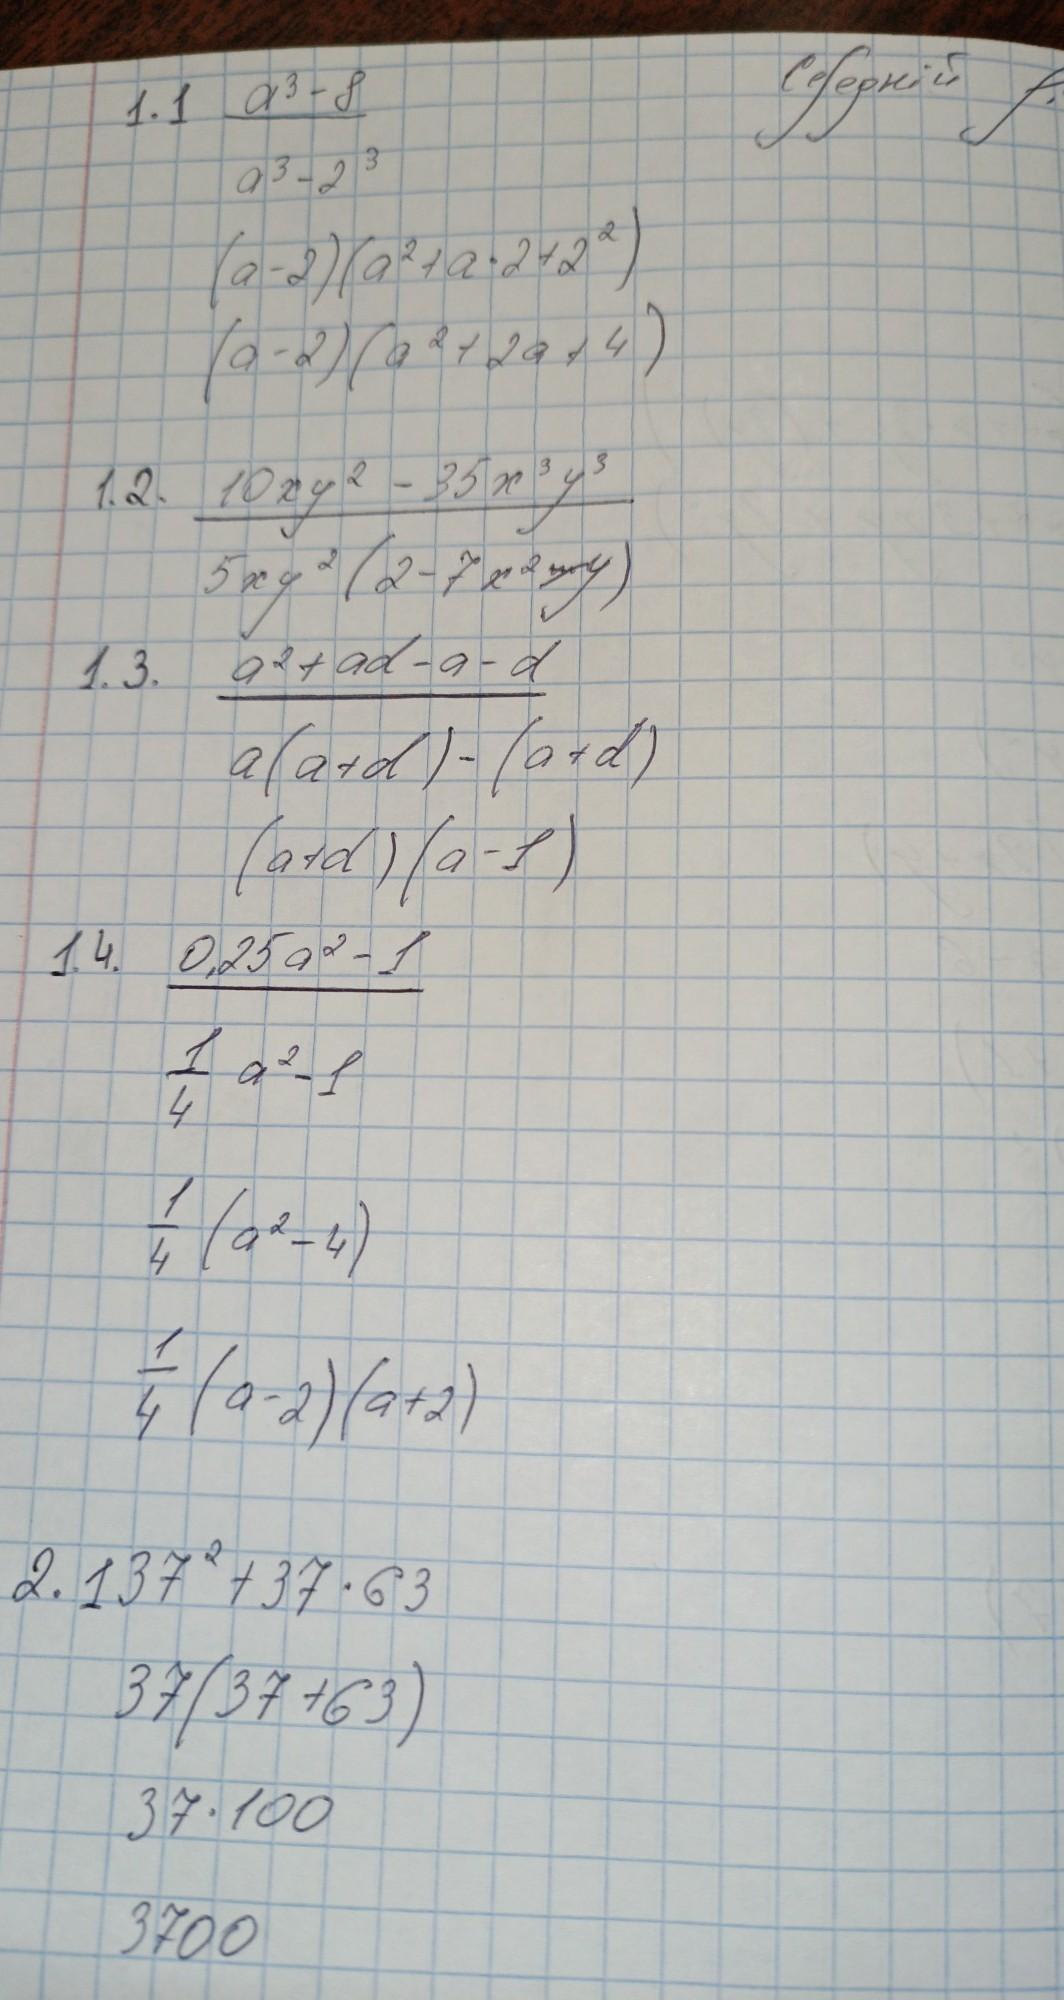 1.1 a³-8
a³-2³
(a-2)(a²+a·2+2²)
(a-2)(a²+2a+4)
1.2. 10xy²-35x³y³
5xy²(2-7x²y)
1.3. a²+ad-a-d
a(a+d)-(a+d)
(a+d)(a-1)
1.4. 0,25a²-1
1/4 a²-1
1/4 (a²-4)
1/4 (a-2)(a+2)
2.1 37²+37·63
37(37+63)
37·100
3700